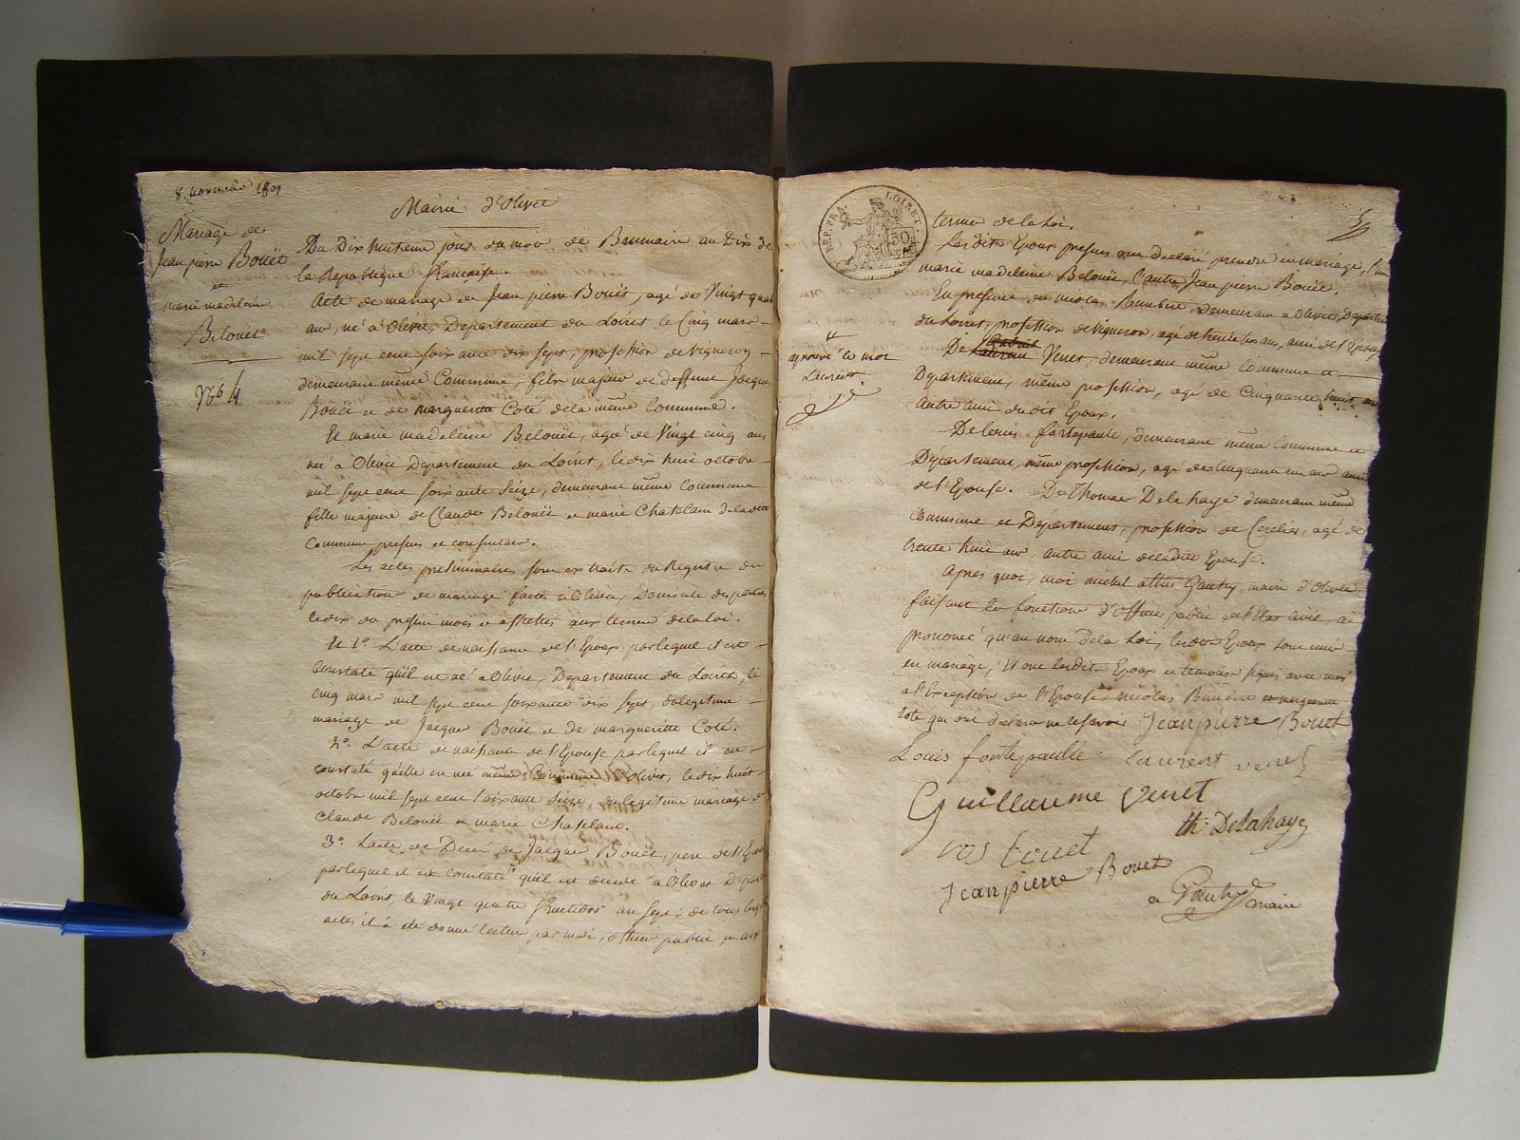 8. novembre 1801
Mairie d'Olivet
Mariage de
Jean pierre Bouët
et
marie madeleine
Belouët
N.º 4
Du Dix huitieme jour du mois de Brumaire an Dix de
la Republique francaise
Acte de mariage de Jean pierre Bouët, agé de Vingt quatre
ans, né à Olivet, Departement du Loiret le Cinq mars
mil sept cent soixante dix sept, profession de Vigneron
demeurant même Commune, fils majeur de deffunt Jacque
Bouët et de marguerite Coté de la même Commune.
Et marie madeleine Belouët, agé de Vingt cinq ans
né à Olivet Departement du Loiret, le dix huit octobre
mil sept cent soixante Seize, demeurant même Commune
fille majeure de Claude Belouët et marie Chatelain de la
Commune presens et consentans.
Les actes preliminaires sont extraits du Registre des
publications de mariage faites à Olivet,
le dix du present mois et affichés aux termes de la loi.
Et 1º L'acte de naissance de l'Epoux par lequel il est
constaté qu'il est né à Olivet, Departement du Loiret, le
cinq mars mil sept cent soixante dix sept, de legitime
mariage de Jacque Bouët et de marguerite Coté.
2º. L'acte de naissance de l'Epouse par lequel il est
constaté qu'elle est née même Commune d'Olivet, le dix huit
octobre mil sept cent soixante Seize, de legitime mariage de
Claude Belouët et marie Chatelain.
3º. L'acte de Decés de Jacque Bouët, pere de l'Epoux
par lequel il est constaté qu'il est decedé à Olivet Depart
du Loiret, le Vingt quatre fructidor an sept; de tous lesquels
actes il a été donné lecture par moi, officier public, aux
REP. FRA. LOIRET.
50
termes de la loi.
Lesdits Epoux presens ont declaré prendre en mariage, l'un
marie madeleine Belouët, l'autre Jean pierre Bouët.
En presence de nicolas demeurant à Olivet, Departement
du Loiret, profession de Vigneron, agé de trente six ans, ami de l'Epoux
De Laurent Venet, demeurant même Commune et
Departement, même profession, agé de Cinquante huit ans
autre ami dudit Epoux.
approuvé le mot
Laurent.
De Louis fortepaulle, demeurant même Commune et
Departement, même profession, agé de cinquante un ans ami
de l'Epouse. De Thomas Delahaye demeurant même
Commune et Departement, profession de Cerclier, agé de
trente huit ans autre ami de ladite Epouse.
Après quoi, moi michel Gaudry, maire d'Olivet
faisant les fonctions d'officier public de l'Etat civil, ai
prononcé qu'au nom de la Loi, lesdits Epoux sont unis
en mariage, et ont lesdits Epoux et temoins signés avec moi
à l'Exception de l'Epouse nicolas et marguerite
Coté qui ont declaré ne le savoir. Jean pierre Bouet
Louis fortepaulle laurent venet
Guillaume Venet
th: Delahaye
Bouet
Jean pierre Bouet
Gaudry maire